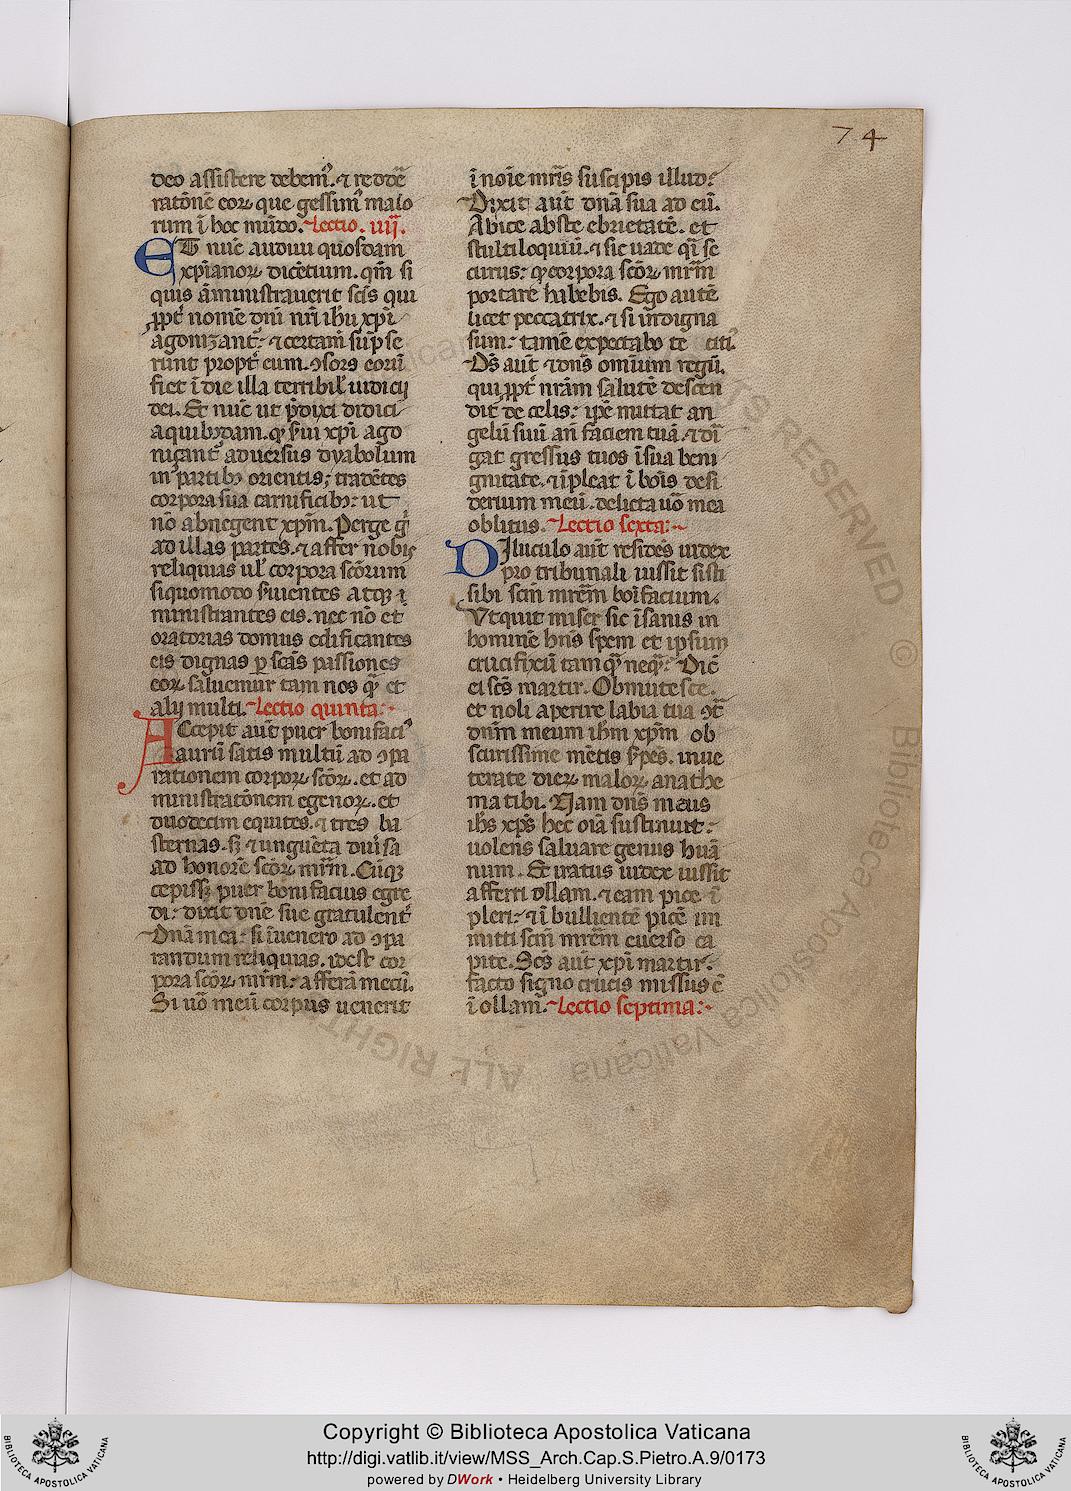 74
deo assistere debem᷒. ⁊ reddē
ratōnē eoꝝ que gessim᷒ malo
rum ī hoc mūdo. Lectio. iiij.
ET nūc audiui quosdam
xp̄ianoꝝ dicētium. qm̄ si
quis āministrauerit scīs qui
ꝓpt̄ nomē dnī nr̄i ihū xp̄i
agonizant᷒. ⁊ certam̄ sūpse
rūnt propt̄ eum. ꝯsors eorū
fiet ī die illa terribil̄ iudicij
dei. Et nūc ut p̄dixi didici
a quibꝰdam. qꝫ s̄ui xp̄i ago
nizant᷒ aduersus dyabolum
in partibꝰ orientis; tradētes
corpora sua carnificibꝰ: ut
nō abnegent xp̄m. Perge g̊
ad illas partes. ⁊ affer nobis
reliquias ul̄ corpora scōrum
si quomodo s̄uientes atqꝫ ī
ministrantes eis. nec nō et
oratorias domus edificantes
eis dignas ꝑ scās passiones
eoꝝ saluemur tam nos qꝫ et
alij multi. Lectio quinta:
ACcepit aut̄ puer bonifaci᷒
aurū satis multū ad ꝯpa
rationem corpoꝝ scōꝝ. et ad
ministratōnem egenoꝝ. et
duodecim equites. ⁊ tres ba
sternas. sꝫ ⁊ unguēta diu᷒sa
ad honorē scōꝝ mr̄m. Cūqꝫ
cepissꝫ puer bonifacius egre
di: dixit dn̄e sue gratulent᷒
Dnā mea: si īuenero ad ꝯpa
randum reliquias. idest cor
pora scōꝝ mr̄m: afferā mecū.
Si uō meū corpus uenerit
ī noīe mr̄is suscipis illud:
Dixit aut̄ dnā sua ad eū.
Abice abste ebrietatē. et
stultiloquiū. ⁊ sic uade qī se
curus: qꝫ corpora scōꝝ mr̄m
portare habebis. Ego autē
licet peccatrix. ⁊ si indigna
sum: tamē expectabo te citi᷒
Ds̄ aut̄ ⁊ dns̄ omīum regū.
qui ꝓpt̄ nrām salutē descen
dit de celis: ip̄e mittat an
gelū suū an̄ faciem tuā. ⁊ dī
gat gressus tuos ī sua beni
gnitate. ⁊ īpleat ī boīs desi
derium meū. delicta uō mea
oblitus. Lectio sexta:
DIluculo aut̄ residēs iudex
pro tribunali iussit sisti
sibi scm̄ mr̄em boīfacium.
Vtquit miser sic īsanis in
hominē hn̄s spem et ipsum
crucifixū tam qꝫ neqꝫ: Dic̄
ei scs̄ martir. Obmutesce.
et noli aperire labia tua ꝯt̄
dnm̄ meum ihm̄ xp̄m ob
scurissime mētis s̄pēs. inue
terate dieꝝ maloꝝ anathe
ma tibi. Nam dns̄ meus
ihs̄ xp̄s hec oīa sustinuit:
uolens saluare genus huā
num. Et iratus iudex iussit
afferri ollam. ⁊ eam pice ī
pleri: ⁊ ī bullientē picē im
mitti scm̄ mr̄em euerso ca
pite. Scs̄ aut̄ xp̄i martir:
facto signo crucis missus ē
ī ollam. Lectio septima:
ALL RIGHTS RESERVED © Biblioteca Apostolica Vaticana
BIBLIOTECA APOSTOLICA VATICANA
Copyright © Biblioteca Apostolica Vaticana
http://digi.vatlib.it/view/MSS_Arch.Cap.S.Pietro.A.9/0173
powered by DWork • Heidelberg University Library
BIBLIOTECA APOSTOLICA VATICANA